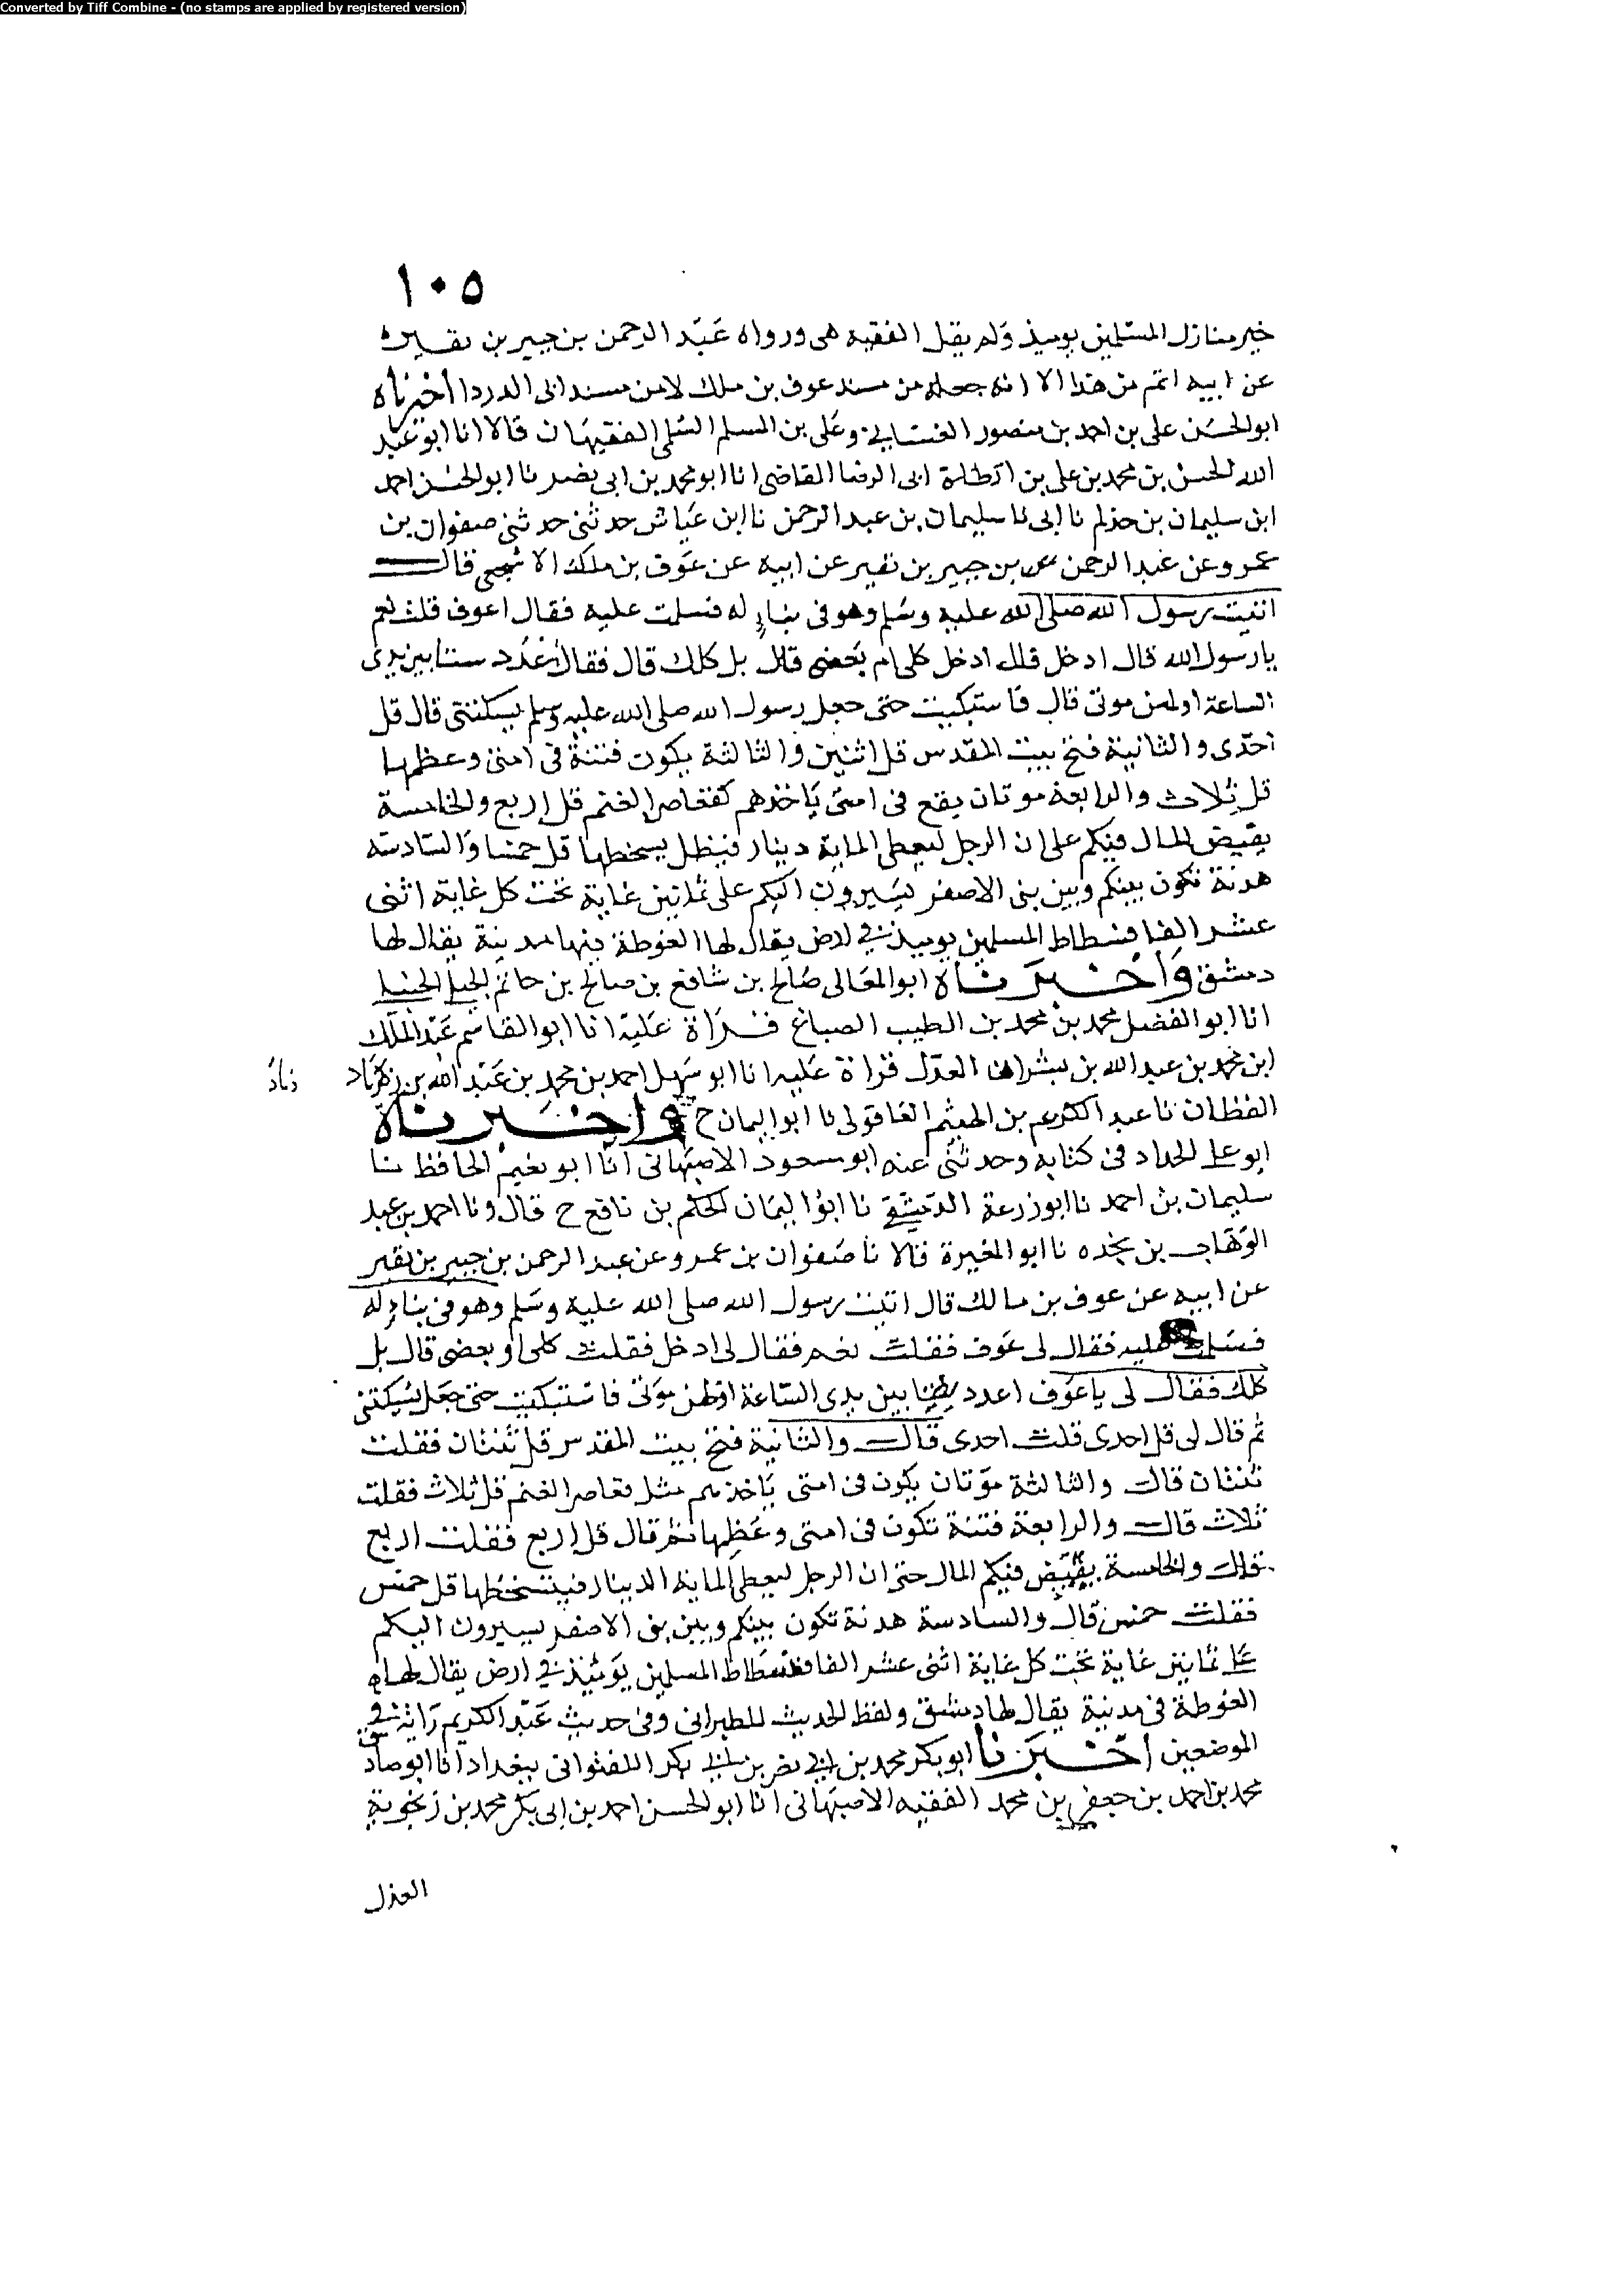 Converted by Tiff Combine - (no stamps are applied by registered version)
١٠٥
خير منازل المسلمين يوميذ ولم يقل الفقيه هي ورواه عبد الرحمن بن جبير بن نفير
عن ابيه اتم من هذا الا انه جعله من مسند عوف بن ملك لا من مسند ابي الدردا اخبرناه
ابو الحسن علي بن احمد بن منصور الغساني وعلي بن المسلم السلمي الفقيهان قالا انا ابو عبد
الله الحسن بن محمد بن علي بن ابي الرضا القاضي انا ابو محمد بن ابي نصر نا ابو الحسن احمد
ابن سليمان بن حذلم نا ابي نا سليمان بن عبد الرحمن نا ابن عياش حدثني حدثني صفوان بن
عمرو عن عبد الرحمن بن جبير بن نفير عن ابيه عن عوف بن ملك الاشجعي قال
اتيت رسول الله صلى الله عليه وسلم وهو في بناء له فسلمت عليه فقال اعوف قلت نعم
يا رسول الله قال ادخل قلت ادخل كلي ام بعضي قال بل كلك قال فقال اعدد ستا بين يدي
الساعة اولهن موتي قال فاستبكيت حتى جعل رسول الله صلى الله عليه وسلم يسكتني قال قل
احدى والثانية فتح بيت المقدس قل اثنين والثالثة يكون فتنة في امتي وعظمها
قل ثلاث والرابعة موتان يقع في امتي ياخذهم كقعاص الغنم قل اربع والخامسة
يفيض المال فيكم على ان الرجل ليعطى الماية دينار فيظل يسخطها قل خمسا والسادسة
هدنة تكون بينكم وبين بني الاصفر يسيرون اليكم على ثمانين غاية تحت كل غاية اثنى
عشر الفا فسطاط المسلمين يوميذ في ارض يقال لها الغوطة فيها مدينة يقال لها
دمشق واخبرناه ابو المعالي صالح بن شافع بن صالح بن حاتم الجيلي الحنبلي
انا ابو الفضل محمد بن محمد بن الطيب الصباغ قراة عليه انا ابو القاسم عبد الملك
ابن محمد بن عبد الله بن بشران العدل قراة عليه انا ابو سهل احمد بن محمد بن عبد الله بن زياد
زياد
القطان نا عبد الكريم بن الهيثم العاقولي نا ابو اليمان ح واخبرناه
ابو علي الحداد في كتابه وحدثني عنه ابو مسعود الاصبهاني انا ابو نعيم الحافظ نا
سليمان بن احمد نا ابو زرعة الدمشقي نا ابو اليمان الحكم بن نافع ح قال ونا احمد بن عبد
الوهاب بن نجده نا ابو المغيرة قالا نا صفوان بن عمرو عن عبد الرحمن بن جبير بن نفير
عن ابيه عن عوف بن مالك قال اتيت رسول الله صلى الله عليه وسلم وهو في بناء له
فسلمت عليه فقال لي عوف فقلت نعم فقال لي ادخل فقلت كلي او بعضي قال بل
كلك فقال لي يا عوف اعدد ستا بين يدي الساعة اولهن موتي فاستبكيت حتى جعل يسكتني
ثم قال لي قل احدى قلت احدى قال والثانية فتح بيت المقدس قل ثنتان فقلت
ثنتان قال والثالثة موتان يكون في امتي ياخذهم مثل قعاص الغنم قل ثلاث فقلت
ثلاث قال والرابعة فتنة تكون في امتي وعظمها ثم قال قل اربع فقلت اربع
قال والخامسة يفيض فيكم المال حتى ان الرجل ليعطى الماية الدينار فيتسخطها قل خمس
فقلت خمس قال والسادسة هدنة تكون بينكم وبين بني الاصفر يسيرون اليكم
على ثمانين غاية تحت كل غاية اثنى عشر الفا فسطاط المسلمين يوميذ في ارض يقال لها
الغوطة في مدينة يقال لها دمشق ولفظ الحديث للطبراني وفي حديث عبد الكريم راية في
الموضعين اخبرنا ابو بكر محمد بن ابي نصر بن ابي بكر اللفتواني ببغداد انا ابو صادق
محمد بن احمد بن جعفر بن محمد الفقيه الاصبهاني انا ابو الحسن احمد بن ابي بكر محمد بن زنجوية
العدل